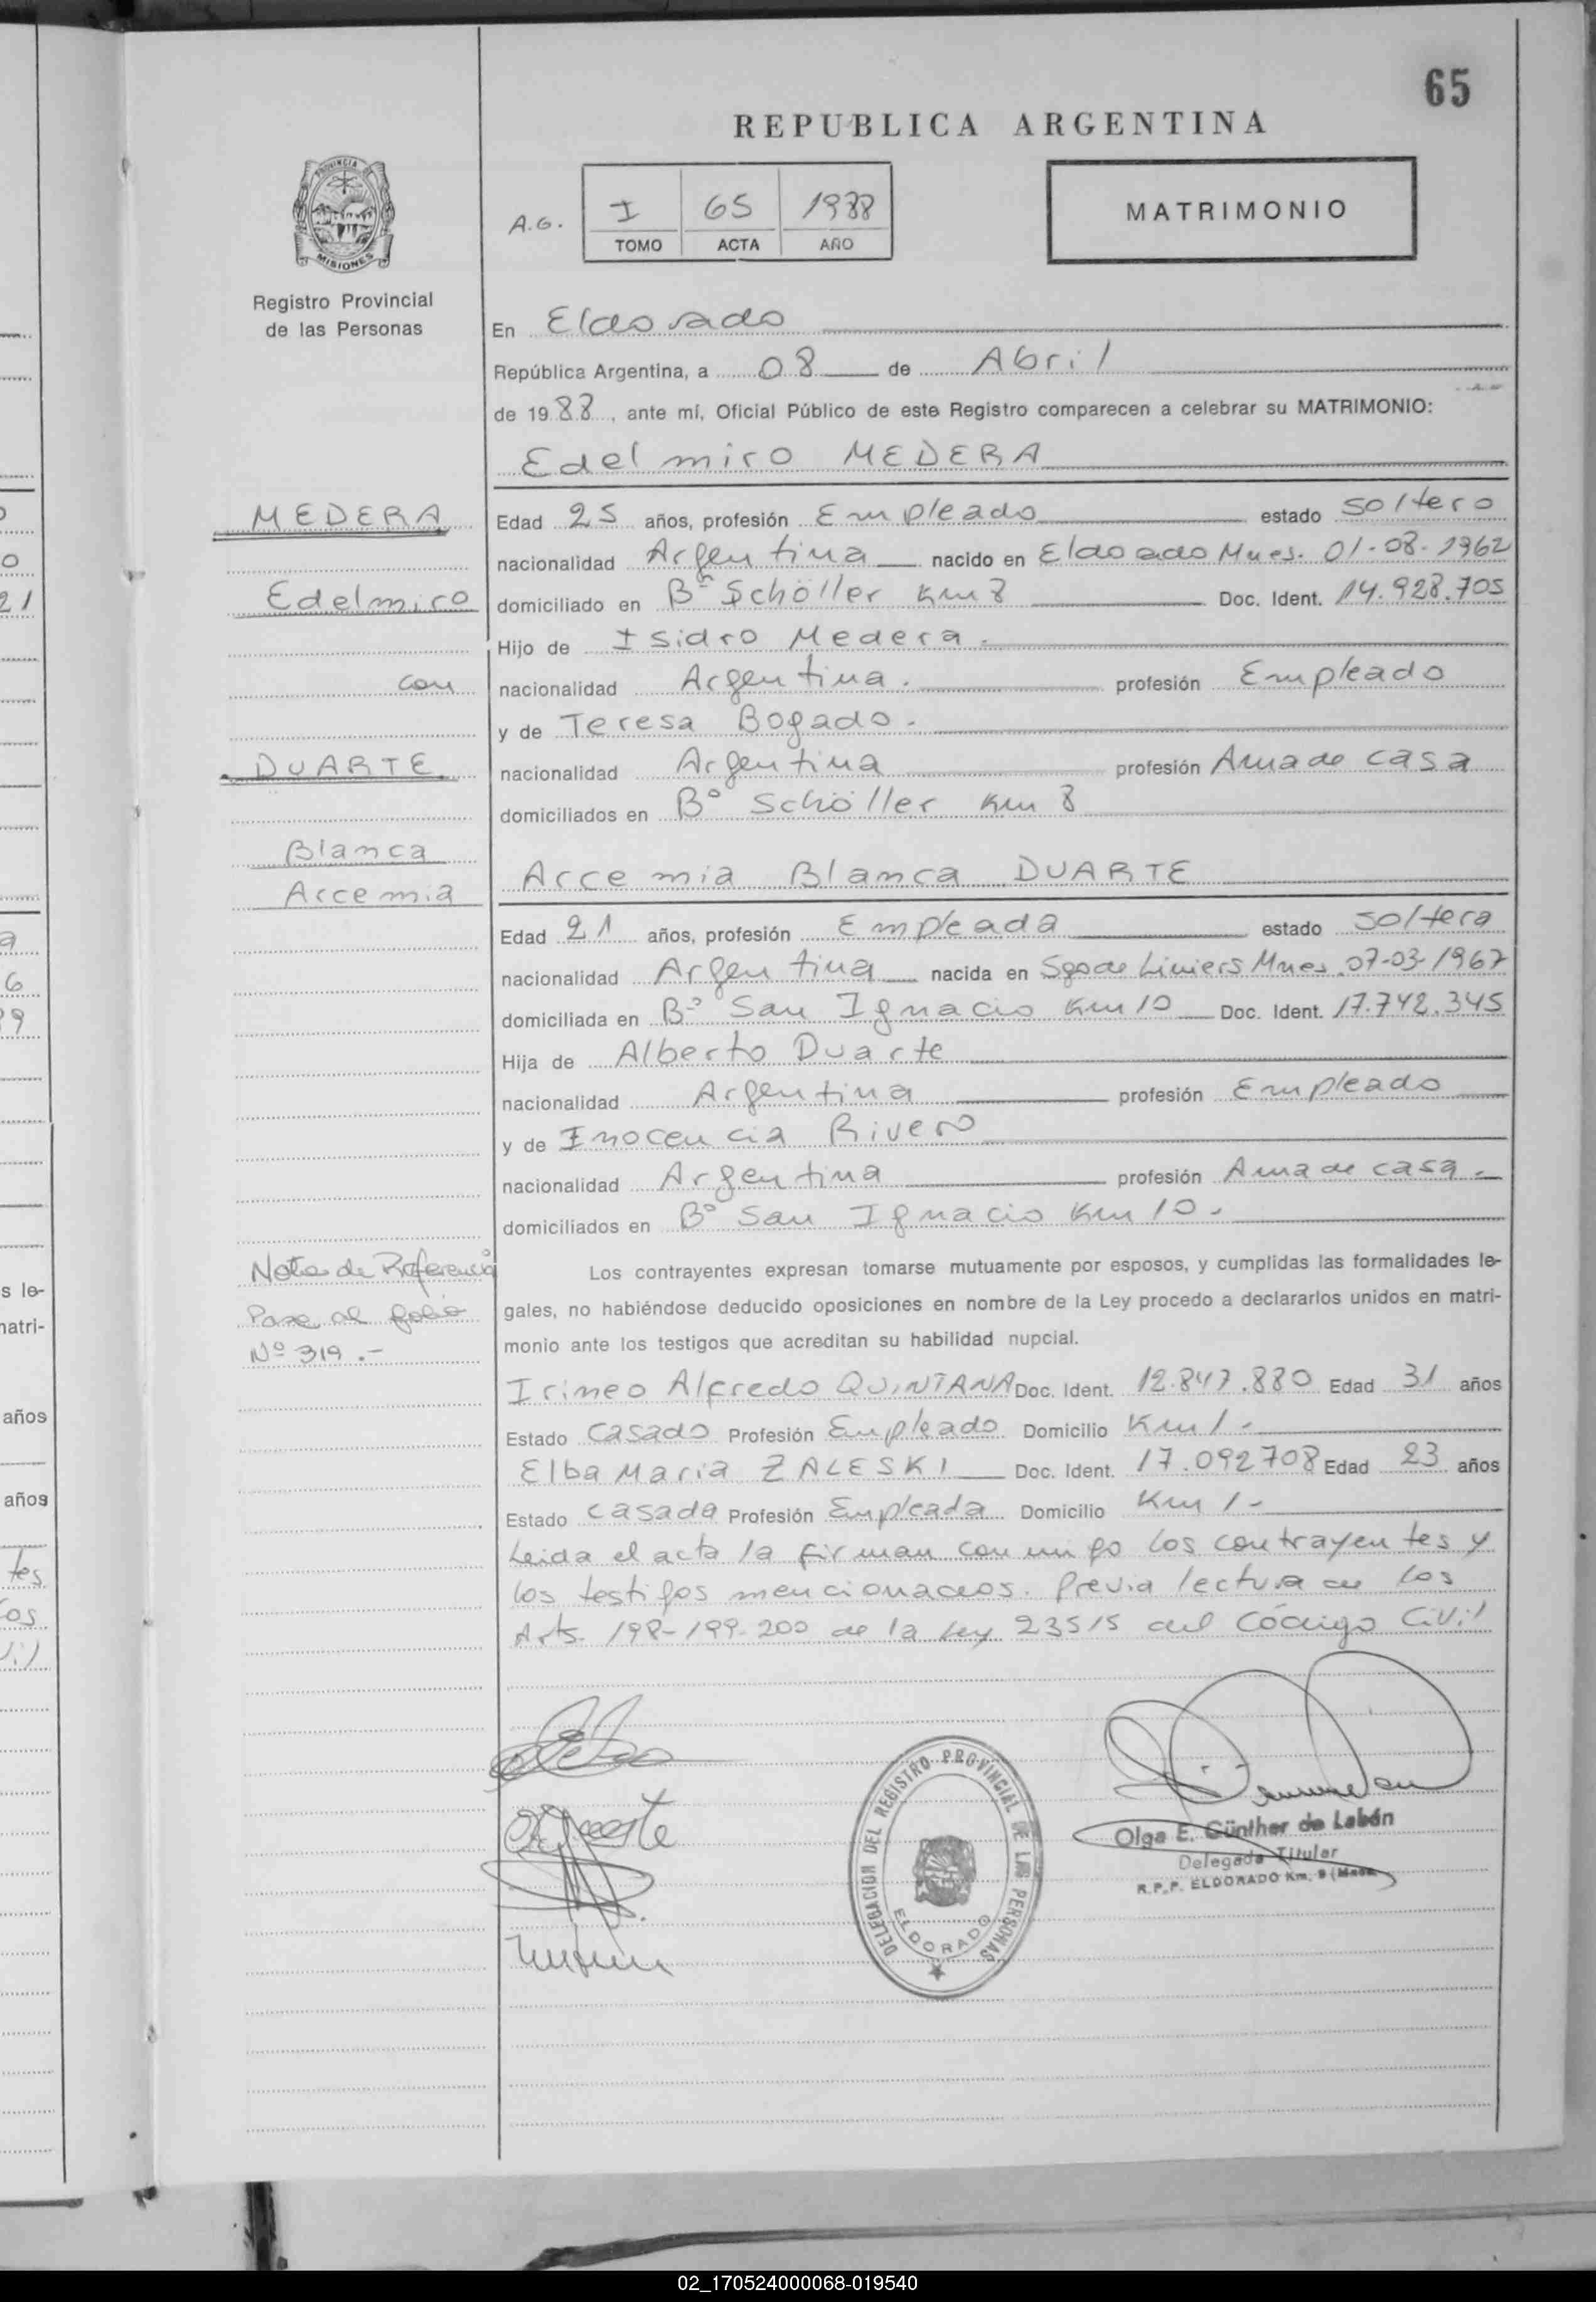 65
REPUBLICA ARGENTINA
PROVINCIA DE
MISIONES
Registro Provincial
de las Personas
A.G. I 65 1988
TOMO ACTA AÑO
MATRIMONIO
En Eldorado
República Argentina, a 08 de Abril
de 1988, ante mí, Oficial Público de este Registro comparecen a celebrar su MATRIMONIO:
Edelmiro MEDERA
MEDERA
Edelmiro
con
DUARTE
Blanca
Arcemia
Edad 25 años, profesión Empleado estado soltero
nacionalidad Argentina nacido en Eldorado Mnes. 01-08-1962
domiciliado en Bº Schöller Km 8 Doc. Ident. 14.928.705
Hijo de Isidro Medera.
nacionalidad Argentina. profesión Empleado
y de Teresa Bogado.
nacionalidad Argentina profesión Ama de casa
domiciliados en Bº Schöller Km 8
Arcemia Blanca DUARTE
Edad 21 años, profesión Empleada estado soltera
nacionalidad Argentina nacida en Sgo de Liniers Mnes. 07-03-1967
domiciliada en Bº San Ignacio Km 10 Doc. Ident. 17.742.345
Hija de Alberto Duarte
nacionalidad Argentina profesión Empleado
y de Inocencia Rivero
nacionalidad Argentina profesión Ama de casa.
domiciliados en Bº San Ignacio Km 10.
Nota de Referencia
Pase al folio
Nº 319.-
Los contrayentes expresan tomarse mutuamente por esposos, y cumplidas las formalidades le-
gales, no habiéndose deducido oposiciones en nombre de la Ley procedo a declararlos unidos en matri-
monio ante los testigos que acreditan su habilidad nupcial.
Irineo Alfredo QUINTANA Doc. Ident. 12.847.880 Edad 31 años
Estado Casado Profesión Empleado Domicilio Km 1.-
Elba Maria ZALESKI Doc. Ident. 17.092708 Edad 23 años
Estado Casada Profesión Empleada Domicilio Km 1-
Leida el acta la firman conmigo los contrayentes y
los testigos mencionados. Previa lectura de los
Arts. 198-199-200 de la Ley 23515 del Código Civil
DELEGACION DEL REGISTRO PROVINCIAL DE LAS PERSONAS
ELDORADO
Olga E. Günther de Labán
Delegada Titular
R.P.P. ELDORADO Km. 9 (Mnes.
s le-
natri-
años
años
tes
os
02_170524000068-019540